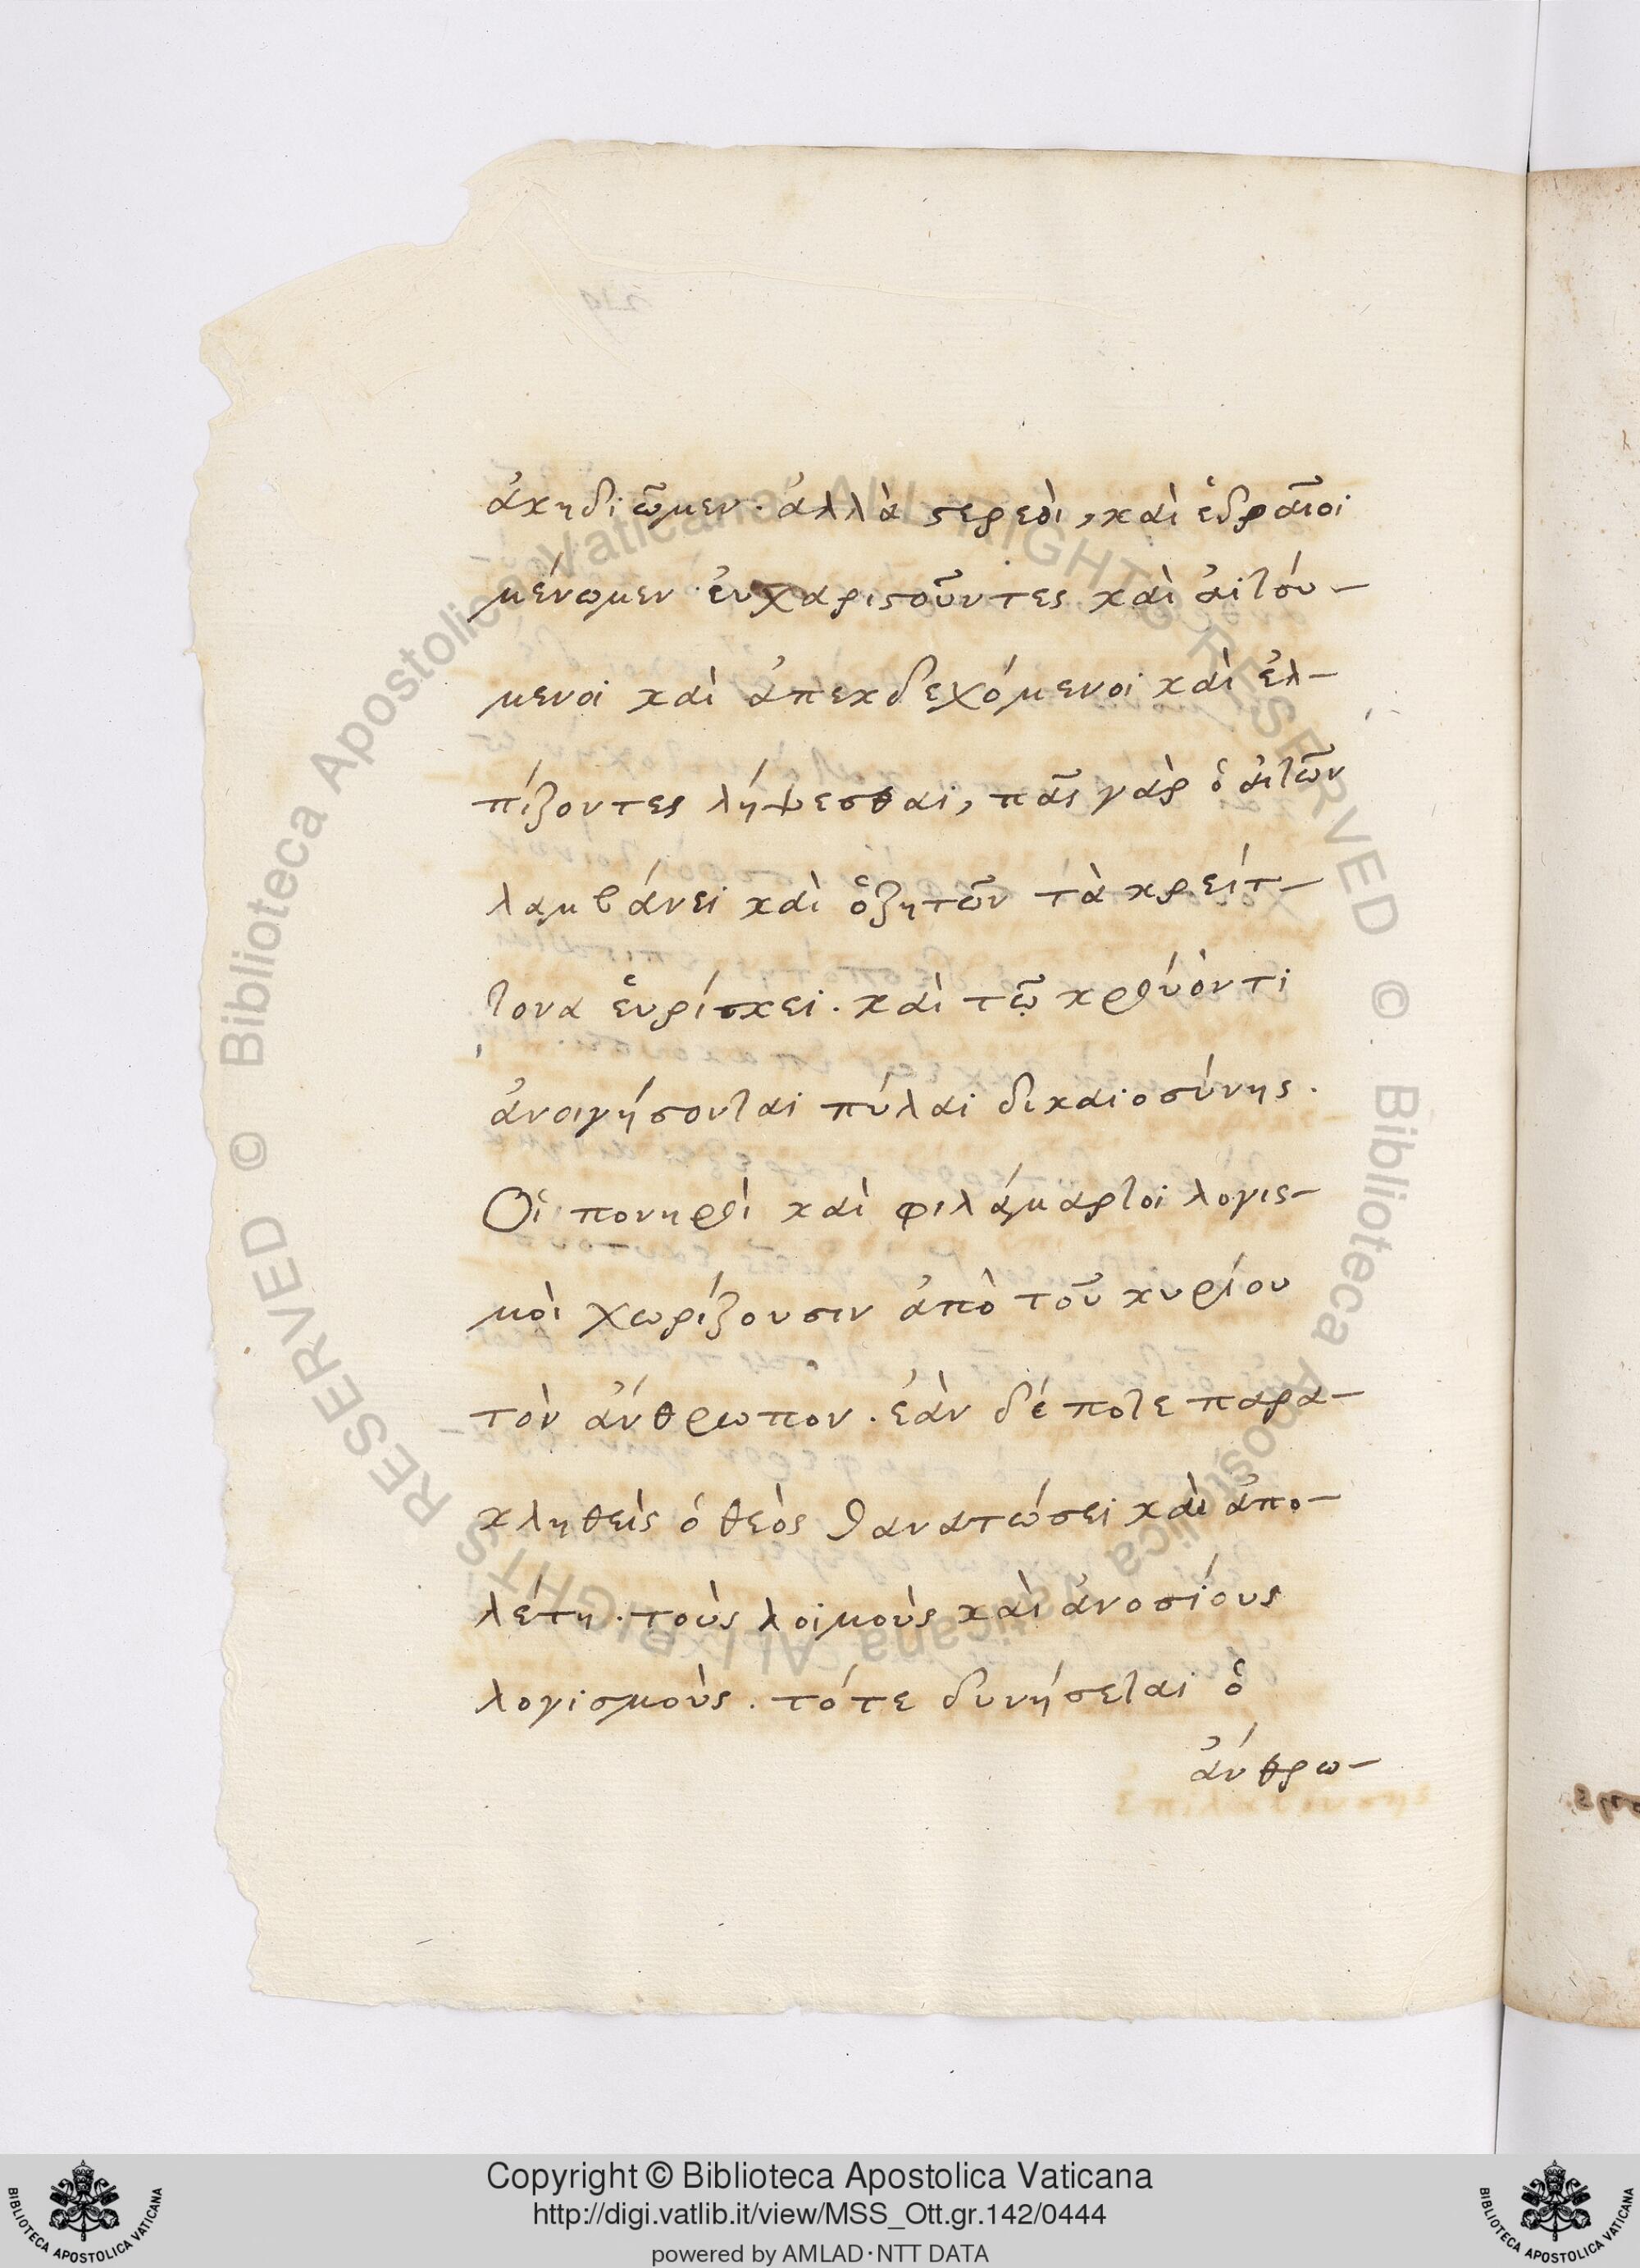 ἀκηδιῶμεν. ἀλλὰ ϛερεὸι, καὶ ἑδραῖοι
μένωμεν ἐυχαριϛοῦντες καὶ ἀιτόυ-
μενοι καὶ ἀπεκδεχόμενοι καὶ ἐλ-
πίζοντες λήψεσθαι, πᾶς γὰρ ὁ ἀιτῶν
λαμβάνει καὶ ὁζητῶν τὰ κρείτ-
τονα ἑυρίσκει. καὶ τῷ κρόυοντι
ἀνοιγήσονται πύλαι δικαιοσύνης.
Οἱ πονηρὸι καὶ φιλάμαρτοι λογις-
μὸι χωρίζουσιν ἀπὸ τοῦ κυρίου
τὸν ἄνθρωπον. ἐὰν δέ ποτε παρα-
κληθεὶς ὁ θεὸς θανατώσει καὶ ἀπο-
λέτη. τοὺς λοιμοὺς καὶ ἀνοσίους
λογισμοὺς. τότε δυνήσεται ὁ
ἄνθρω-
Copyright © Biblioteca Apostolica Vaticana
http://digi.vatlib.it/view/MSS_Ott.gr.142/0444
powered by AMLAD·NTT DATA
BIBLIOTECA APOSTOLICA VATICANA
BIBLIOTECA APOSTOLICA VATICANA
© Biblioteca Apostolica Vaticana ALL RIGHTS RESERVED
© Biblioteca Apostolica Vaticana ALL RIGHTS RESERVED